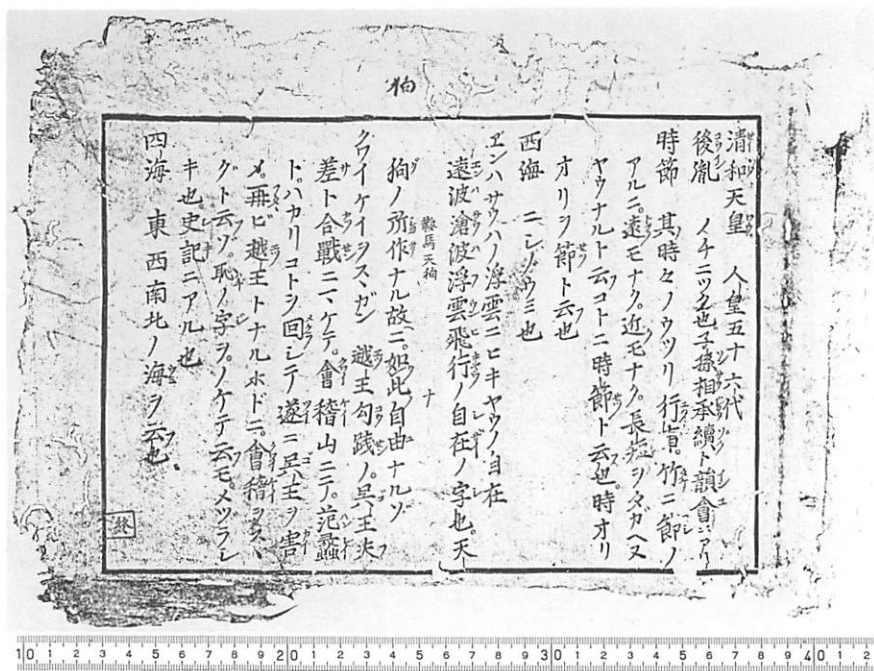 狗
清和天皇 人皇五十六代
後胤 ノチニツク也子孫相承續ト韻會ニアリ
時節 其時々ノウツリ行㒵。竹ニ節ノ
アルニ。遠モナク。近モナク。長短ヲタガヘヌ
ヤウナルト云コトニ時節ト云也。時オリ
オリヲ節ト云也
西海 ニシノウミ也
ヱンハサウハノ浮雲ニヒキヤウノ自在
遠波滄波浮雲飛行ノ自在ノ字也。天
鞍馬天狗 ナ
狗ノ所作ナル故ニ。如此自由ナルゾ
クワイケイヲスヽガン 越王勾践ノ。呉王夫
差ト合戰ニマケテ。會稽山ニテ。范蠡
ト。ハカリコトヲ回シテ遂ニ呉王ヲ害
メ。再ビ越王トナルホドニ。會稽ヲスヽ
グト云ゾ。恥ノ字ヲ。ノケテ云モ。メツラシ
キ也史記ニアル也
四海 東西南北ノ海ヲ云也
終
10 1 2 3 4 5 6 7 8 9 20 1 2 3 4 5 6 7 8 9 30 1 2 3 4 5 6 7 8 9 40 1 2